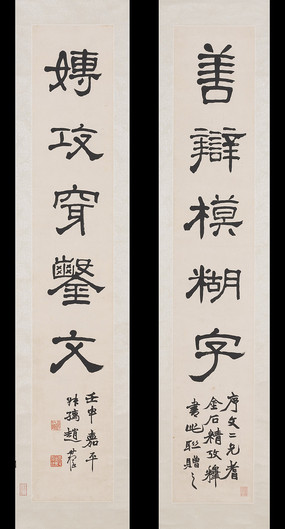 善辯模糊字
序文二兄耆
金石精攷釋
書此聯贈之
嫥攻穿鑿文
壬申嘉平
叔孺趙時棡